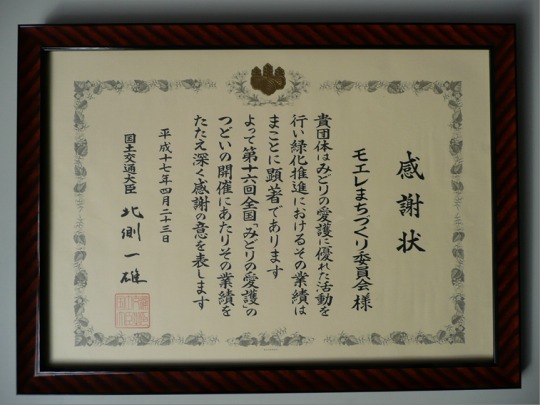 感謝状
モエレまちづくり委員会様
貴団体はみどりの愛護に優れた活動を
行い緑化推進におけるその業績は
まことに顕著であります
よって第十六回全国「みどりの愛護」の
つどいの開催にあたりその業績を
たたえ深く感謝の意を表します
平成十七年四月二十三日
国土交通大臣 北側一雄